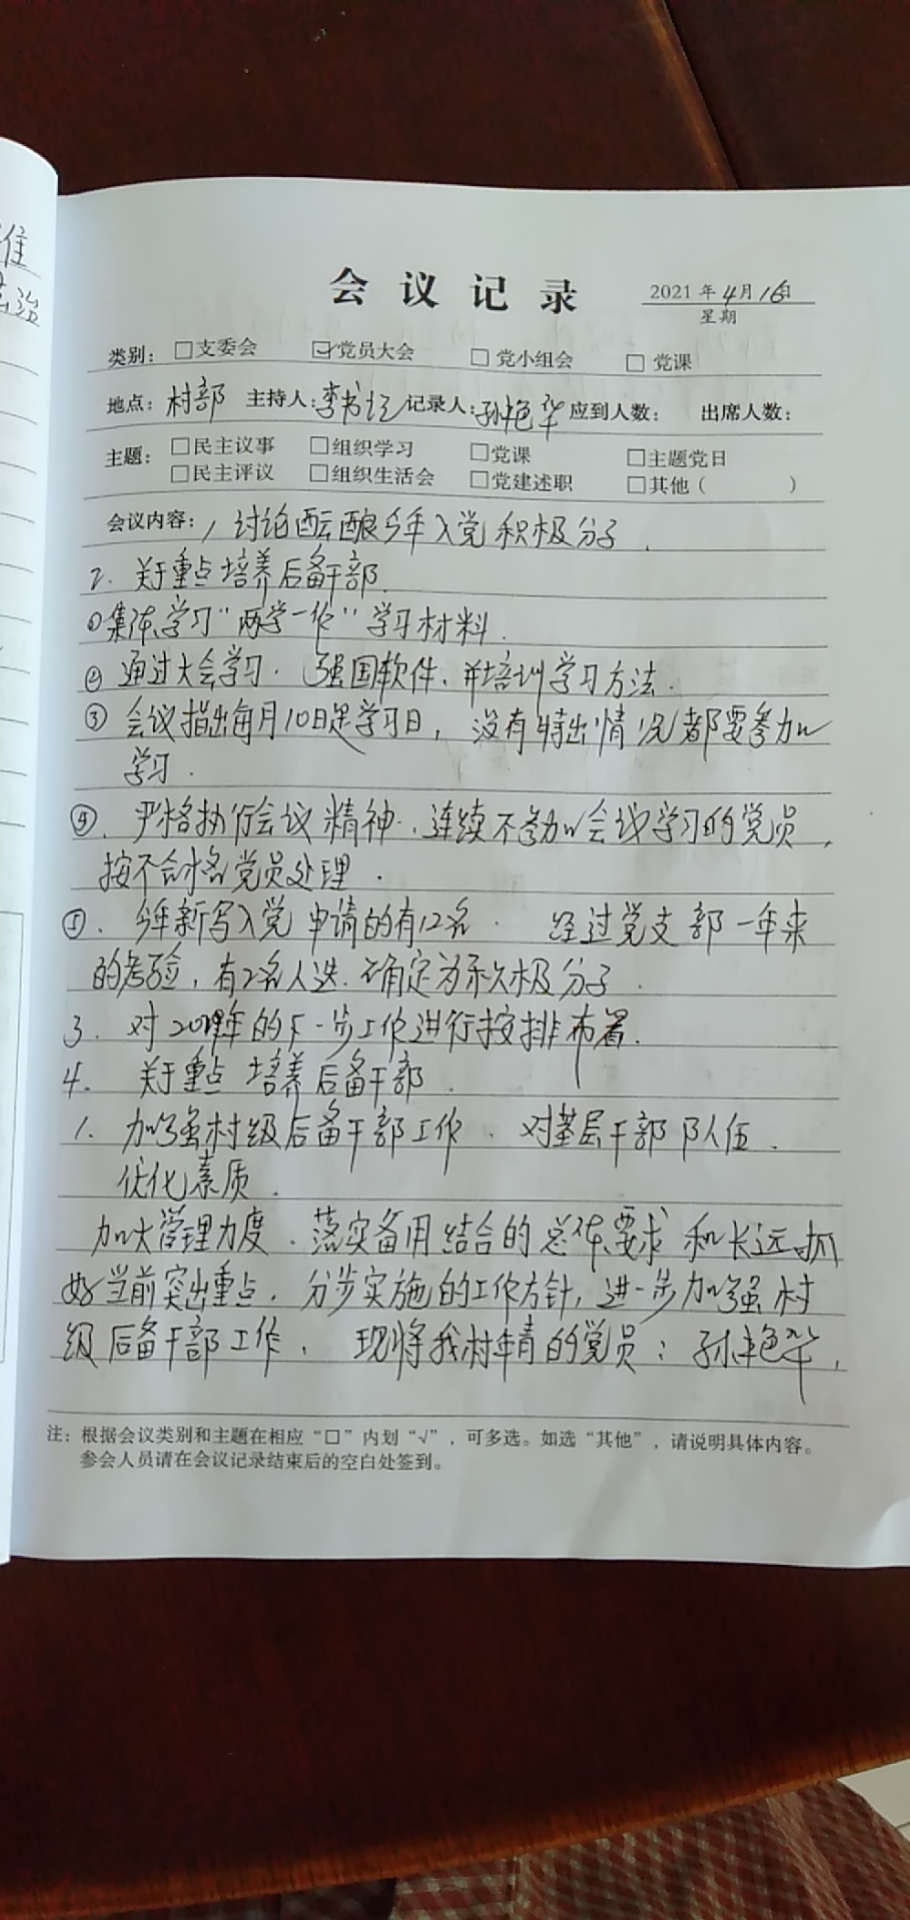 会议记录
2021年4月16日
星期
类别：□支委会 ☑党员大会 □党小组会 □党课
地点：村部 主持人：李书记 记录人：孙艳华 应到人数： 出席人数：
主题：□民主议事 □组织学习 □党课 □主题党日
□民主评议 □组织生活会 □党建述职 □其他（ ）
会议内容：1 讨论酝酿今年入党积极分子.
2. 关于重点培养后备干部.
①集体学习“两学一作”学习材料.
②通过大会学习.强国软件、并培训学习方法.
③会议指出每月10日是学习日，没有特出情况都要参加
学习.
④.严格执行会议精神.连续不参加会议学习的党员，
按不合格党员处理.
⑤.今年新写入党申请的有12名. 经过党支部一年来
的考验，有2名人选.确定为积极分子.
3. 对年的下一步工作进行按排布署.
4. 关于重点培养后备干部.
1. 加强村级后备干部工作.对基层干部队伍.
优化素质.
加大管理力度.落实备用结合的总体要求和长远抓
好当前突出重点.分步实施的工作方针，进一步加强村
级后备干部工作. 现将我村年青的党员：孙艳华，
注：根据会议类别和主题在相应“□”内划“√”，可多选。如选“其他”，请说明具体内容。
参会人员请在会议记录结束后的空白处签到。
准
法治